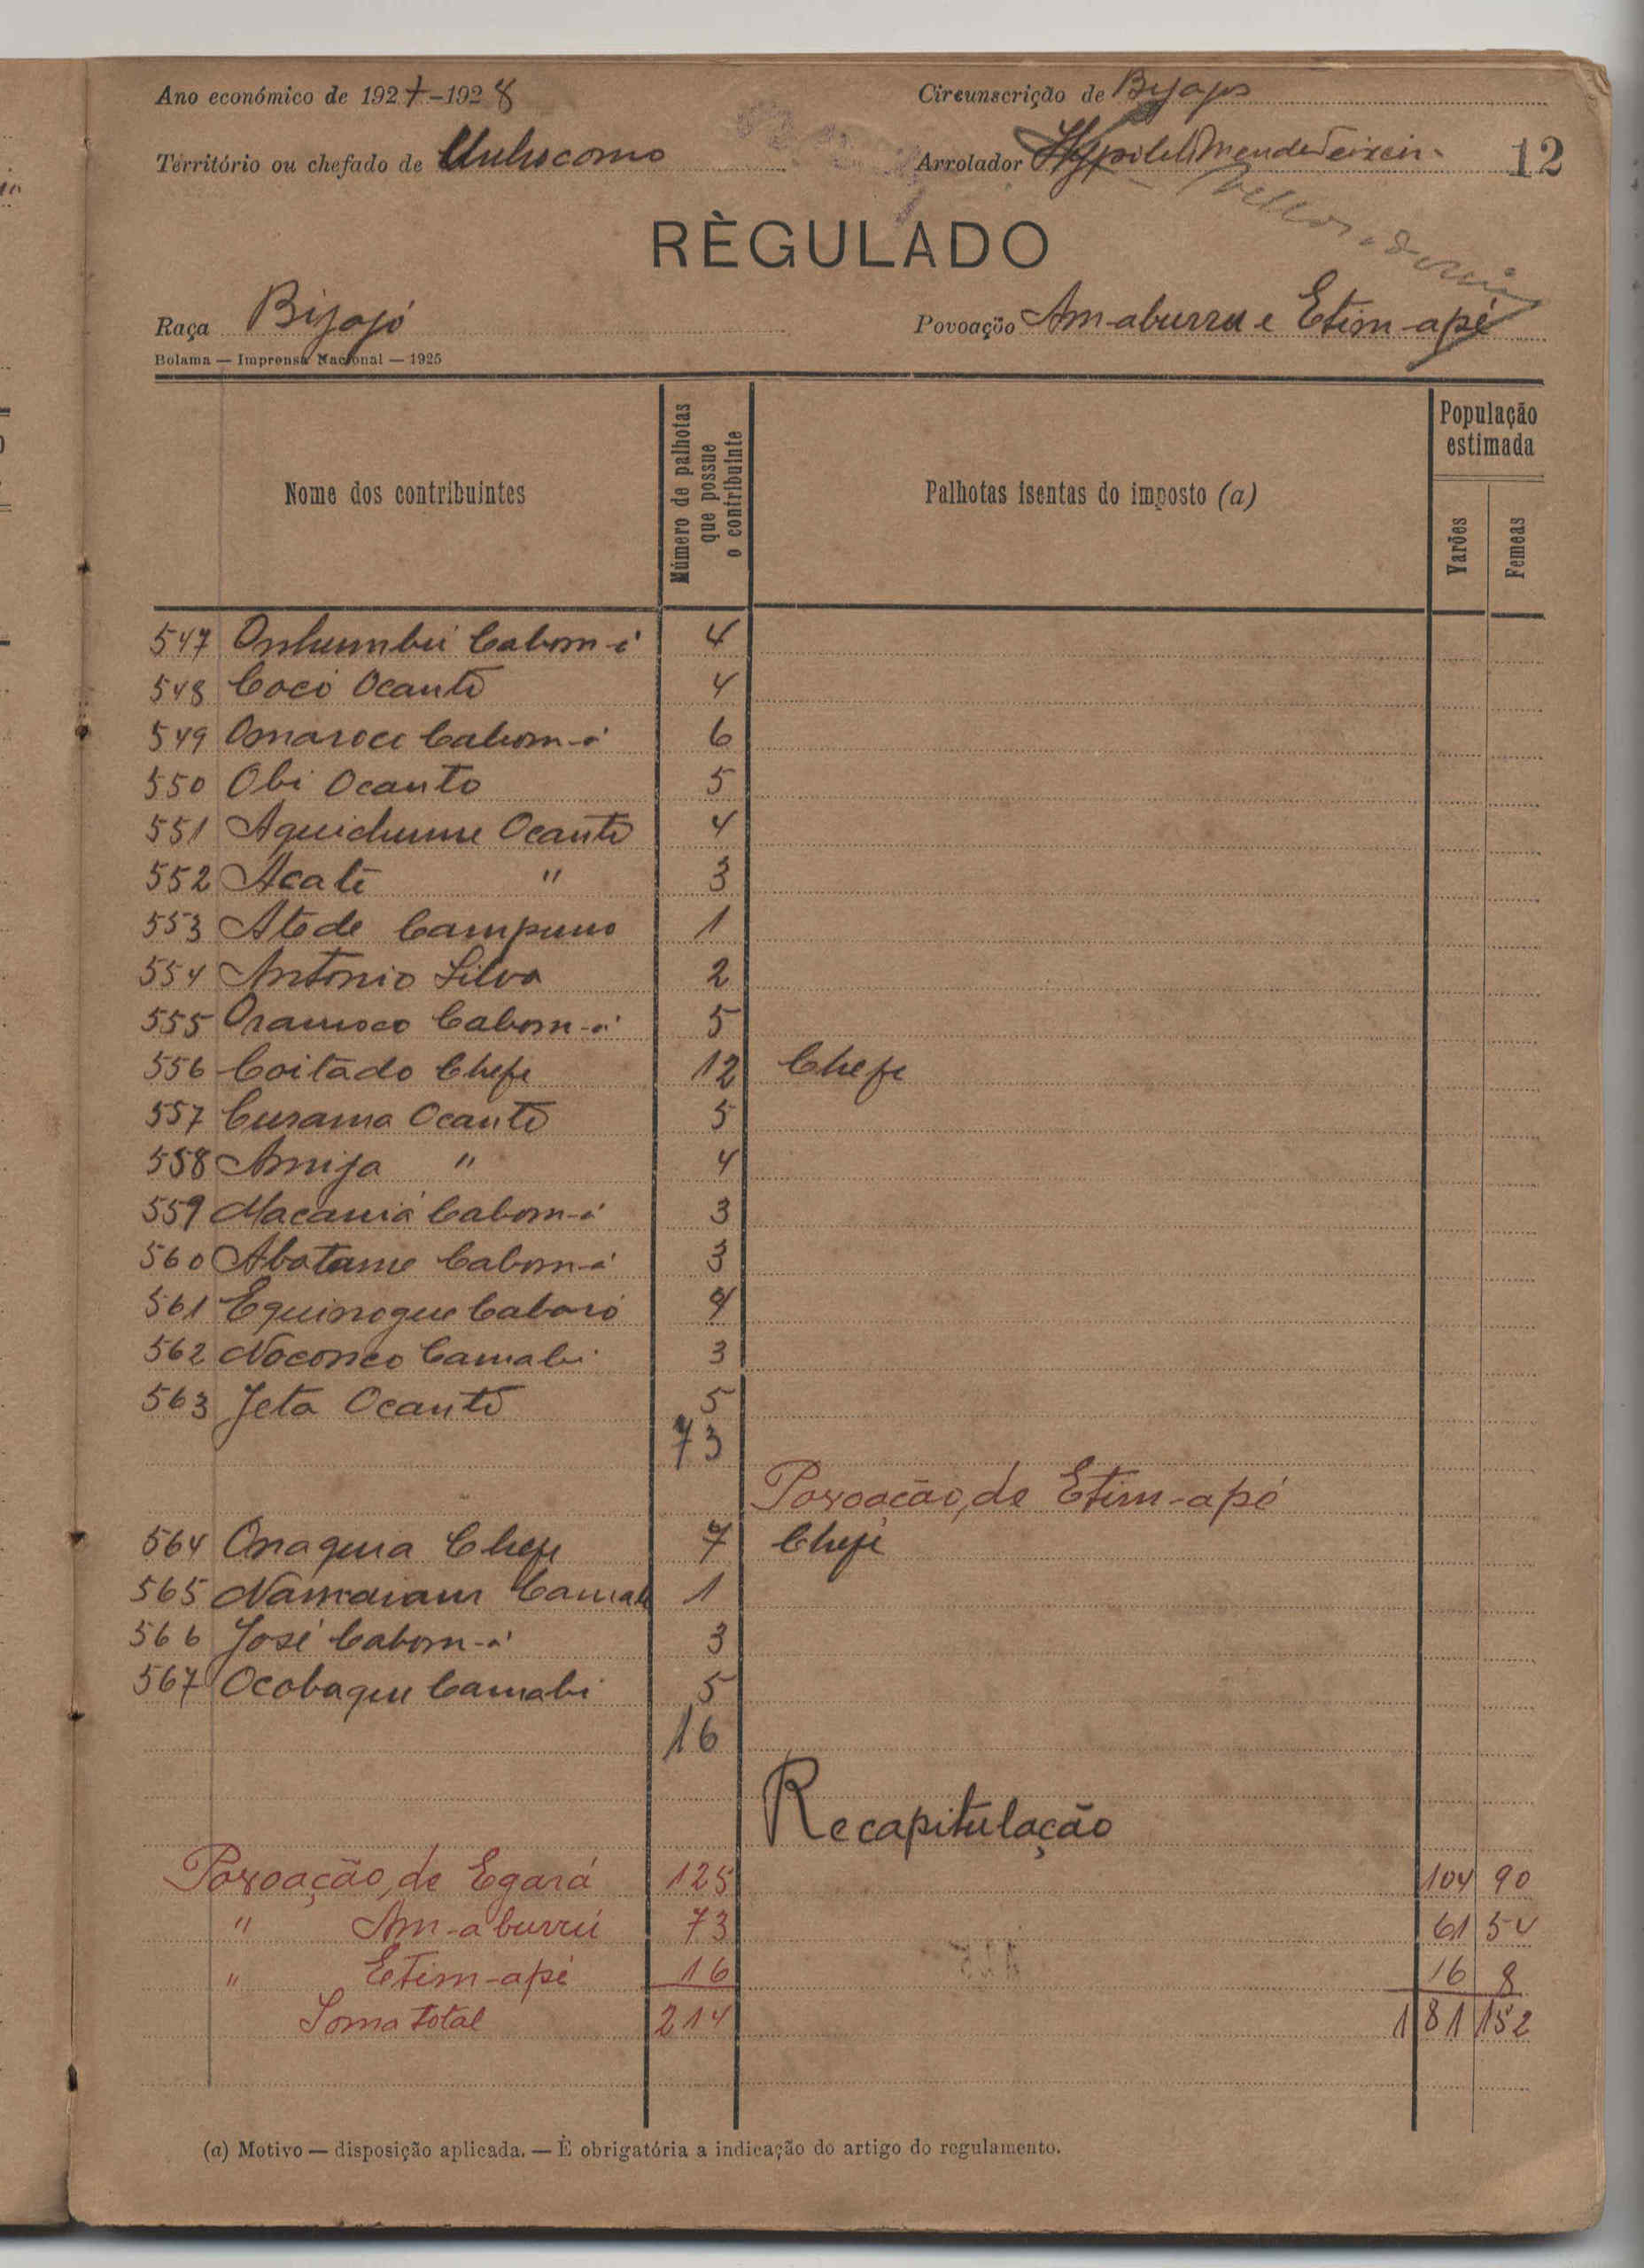 Ano económico de 1927-1928
Circunscrição de Bijagos
Território ou chefado de
Arrolador Mendes Teixeira
12
RÈGULADO
Raça Bijagó
Povoação Am-aburru e Etim-apé
Bolama — Imprensa Nacional — 1925
Nome dos contribuintes
Número de palhotas que possue o contribuinte
Palhotas isentas do imposto (a)
População estimada
Varões
Femeas
547 Onhumbú Cabom-á 4
548 Cocó Ocanto 4
549 Omaroce Cabom-á 6
550 Obi Ocanto 5
551 Aquichume Ocanto 4
552 Acate " 3
553 Atode Campuno 1
554 Antonio Silva 2
555 Oramoco Cabom-á 5
556 Coitado Chefe 12 Chefe
557 Curama Ocanto 5
558 Amija " 4
559 Macaniá Cabom-á 3
560 Abotame Cabom-á 3
561 Equinogue Cabaró 4
562 Noconco Camabi 3
563 Jeta Ocanto 5
73
Povoação de Etim-apé
564 Onagura Chefe 7 Chefe
565 1
566 José Cabom-á 3
567 Ocobague Camabi 5
16
Recapitulação
Povoação de Egará 125 104 90
" Am-aburrú 73 61 54
" Etim-apé 16 16 8
Soma total 214 181 152
(a) Motivo — disposição aplicada. — È obrigatória a indicação do artigo do regulamento.